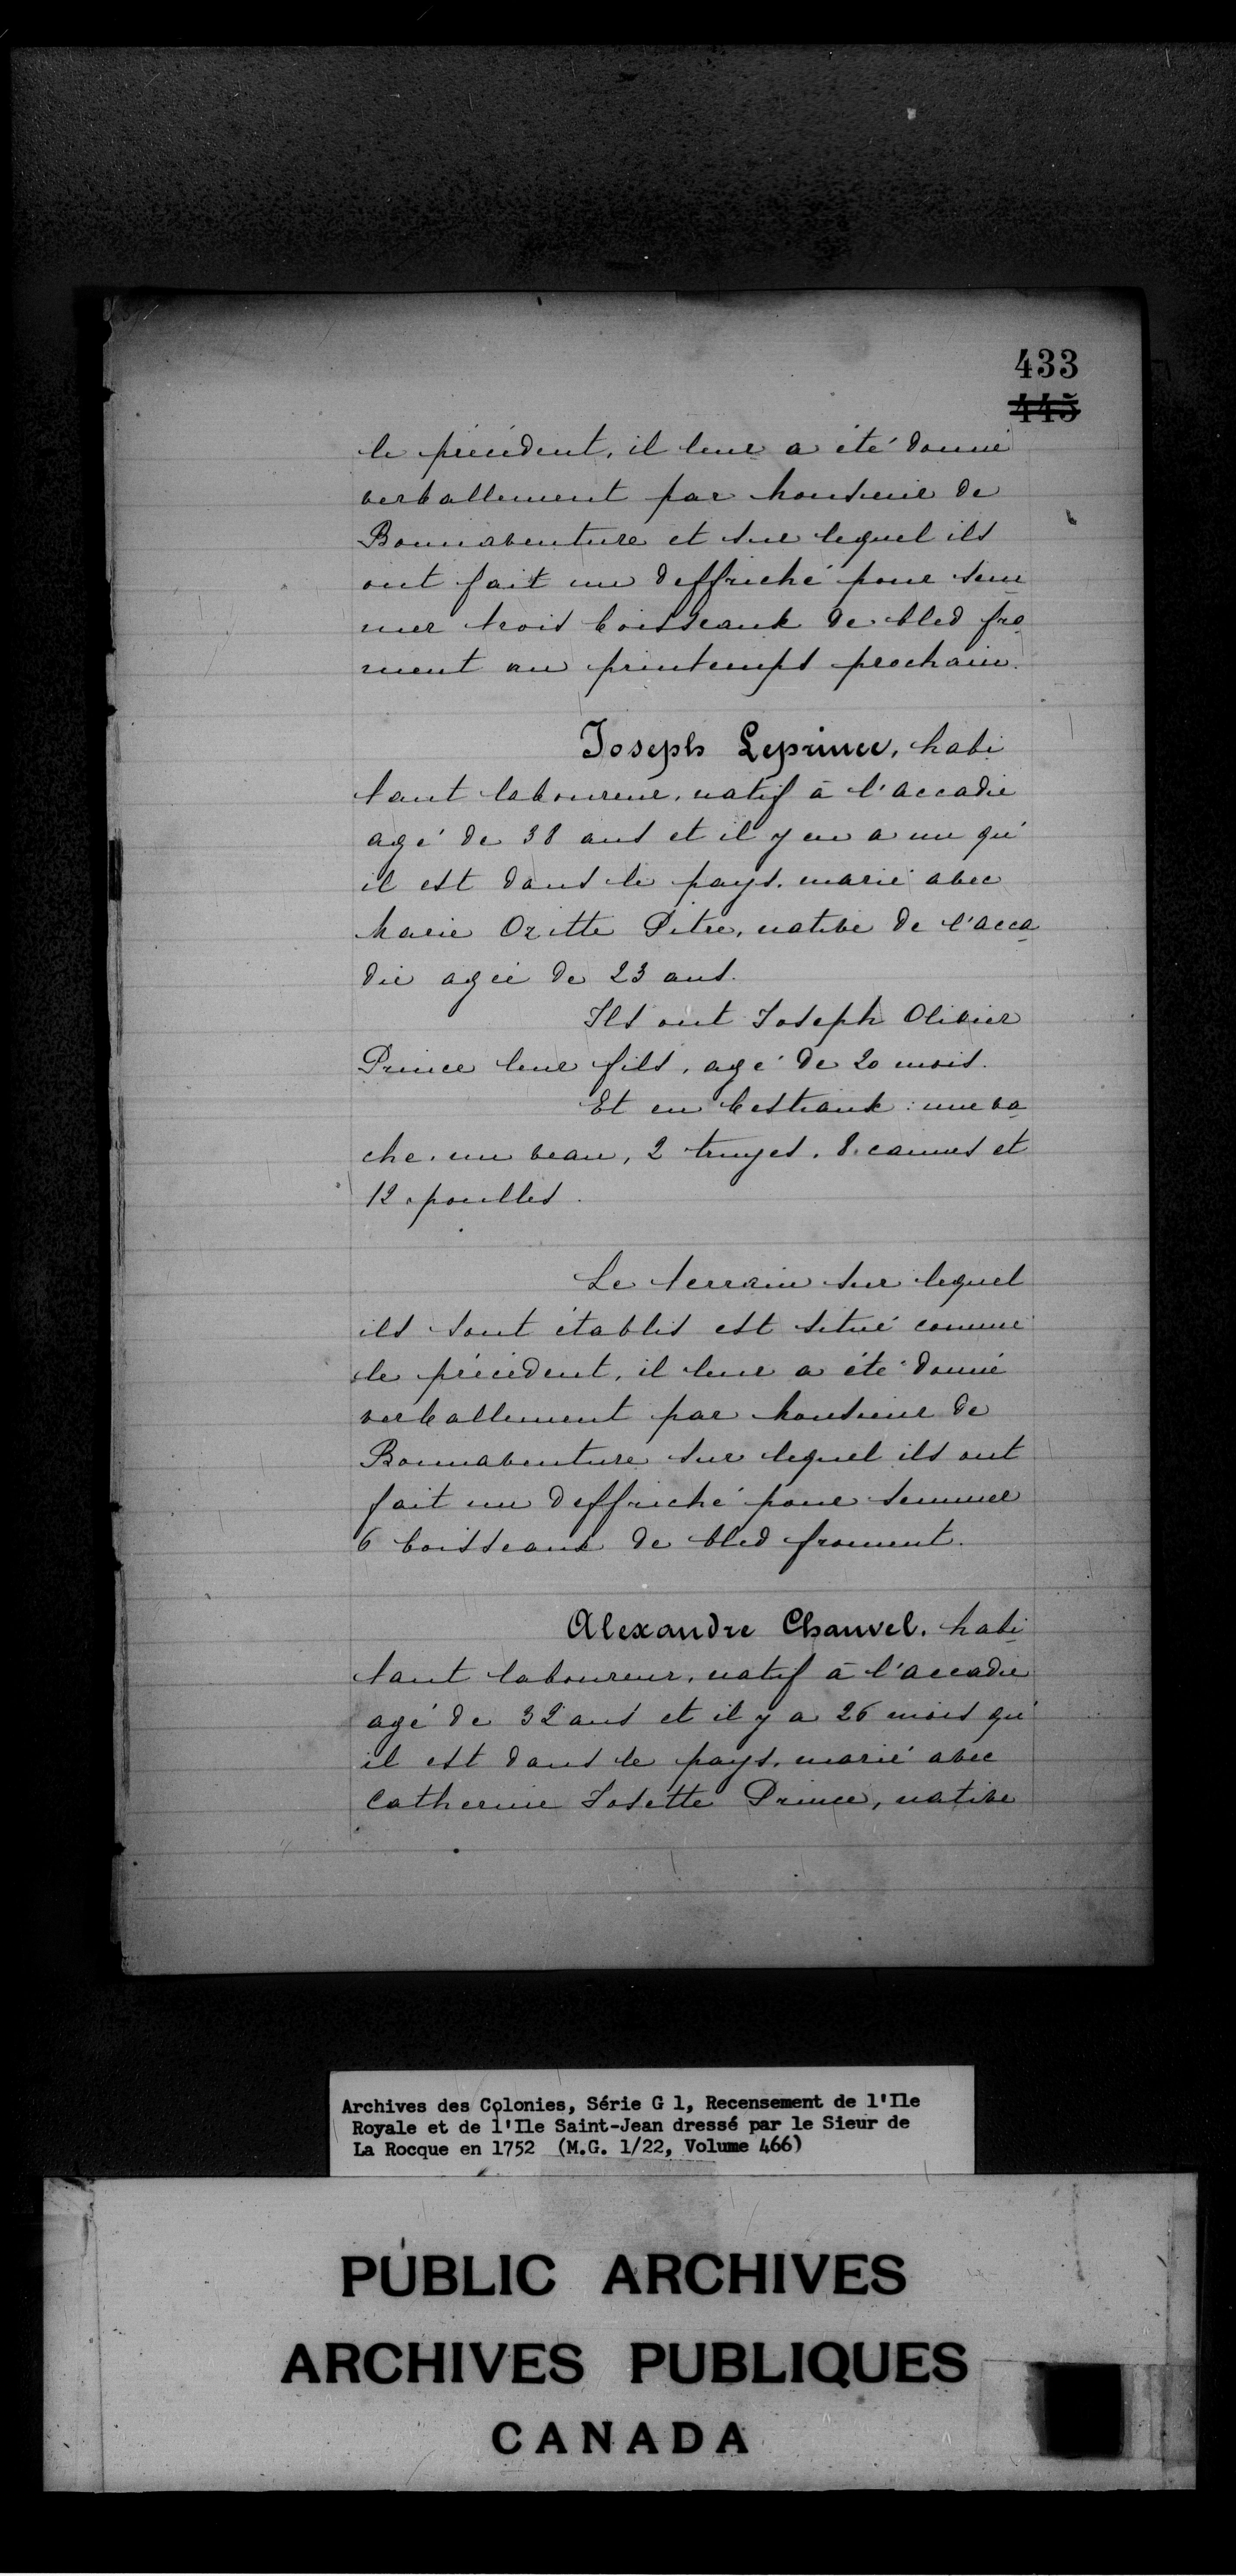 433
445
le précédent, il leur a été donné
verballement par Monsieur de
Bonnaventure et sur lequel ils
ont fait un deffriché pour sem
mer trois boisseaux de bled fro
ment au printemps prochain.
Joseph Leprince, habi
tant laboureur, natif à l'accadie
agé de 38 ans et il y en a un qu'
il est dans le pays, marié avec
Marie Ozitte Pitre, native de l'acca
die agée de 23 ans.
Ils ont Joseph Olivier
Prince leur fils, agé de 20 mois.
Et en bestiaux : une va
che, un veau, 2 truyes, 8 cannes et
12 poulles.
Le terrain sur lequel
ils sont établis est situé comme
le précédent, il leur a été donné
verballement par Monsieur de
Bonnaventure sur lequel ils ont
fait un deffriché pour semmer
6 boisseaux de bled froment.
Alexandre Chauvel, habi
tant laboureur, natif à l'accadie
agé de 32 ans et il y a 26 mois qu'
il est dans le pays, marié avec
Catherine Josette Prince, native
Archives des Colonies, Série G 1, Recensement de l'Ile
Royale et de l'Ile Saint-Jean dressé par le Sieur de
La Rocque en 1752 (M.G. 1/22, Volume 466)
PUBLIC ARCHIVES
ARCHIVES PUBLIQUES
CANADA